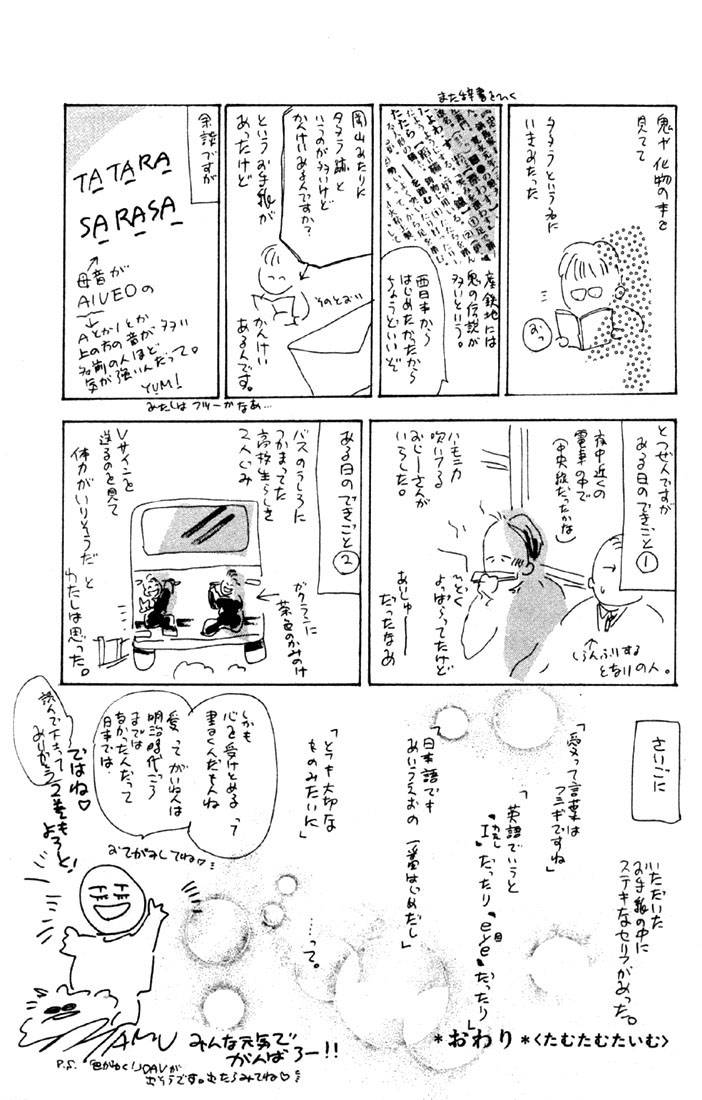 鬼や化物の本を
見てて
タタラという名に
いきあたった
おっ
また辞書をひく
産鉄地には
鬼の伝説が
多いという。
西日本から
はじめたかったから
ちょうどいいぞ
岡山あたりに
タタラ跡と
いうのが多いけど
かんけいあるんですか?
というお手紙が
あったけど
そのとおり
かんけい
あるんです。
余談ですが
TATARA
SARASA
母音が
AIUEOの
AとかIとか
上の方の音が多い
名前の人ほど
気が強いんだって。
YUMI
わたしはフツーかなあ…
とつぜんですが
ある日のできごと①
夜中近くの
電車の中で
(中央線だったかな)
ハモニカ
吹いてる
おじーさんが
いらした。
ひどく
よっぱらってたけど
あいじゅー
だったなあ
しらんふりする
となりの人。
ある日のできごと②
バスのうしろに
つかまってた
高校生らしき
2人ぐみ
ガクランに
茶色のかみのけ
Vサインを
送るのを見て
体力がいりそうだ と
わたしは思った。
さいごに
いただいた
お手紙の中に
ステキなセリフがあった。
「愛って言葉は
フシギですね」
「英語でいうと
"I"私だったり"eye"目だったり」
日本語でも
あいうえおの 一番はじめだし」
「とても大切な
ものみたいに」
……って。
しかも
心を受けとめるって
書くんだもんね
愛ってがいねんは
明治時代ごろ
までは
日本では
なかったんだって
おてがみしてね♡
読んで下さって
ありがとう
ではね♡
2巻もよろしく!
TAMU
みんな元気で
がんばろー!!
*おわり*<たむたむたいむ>